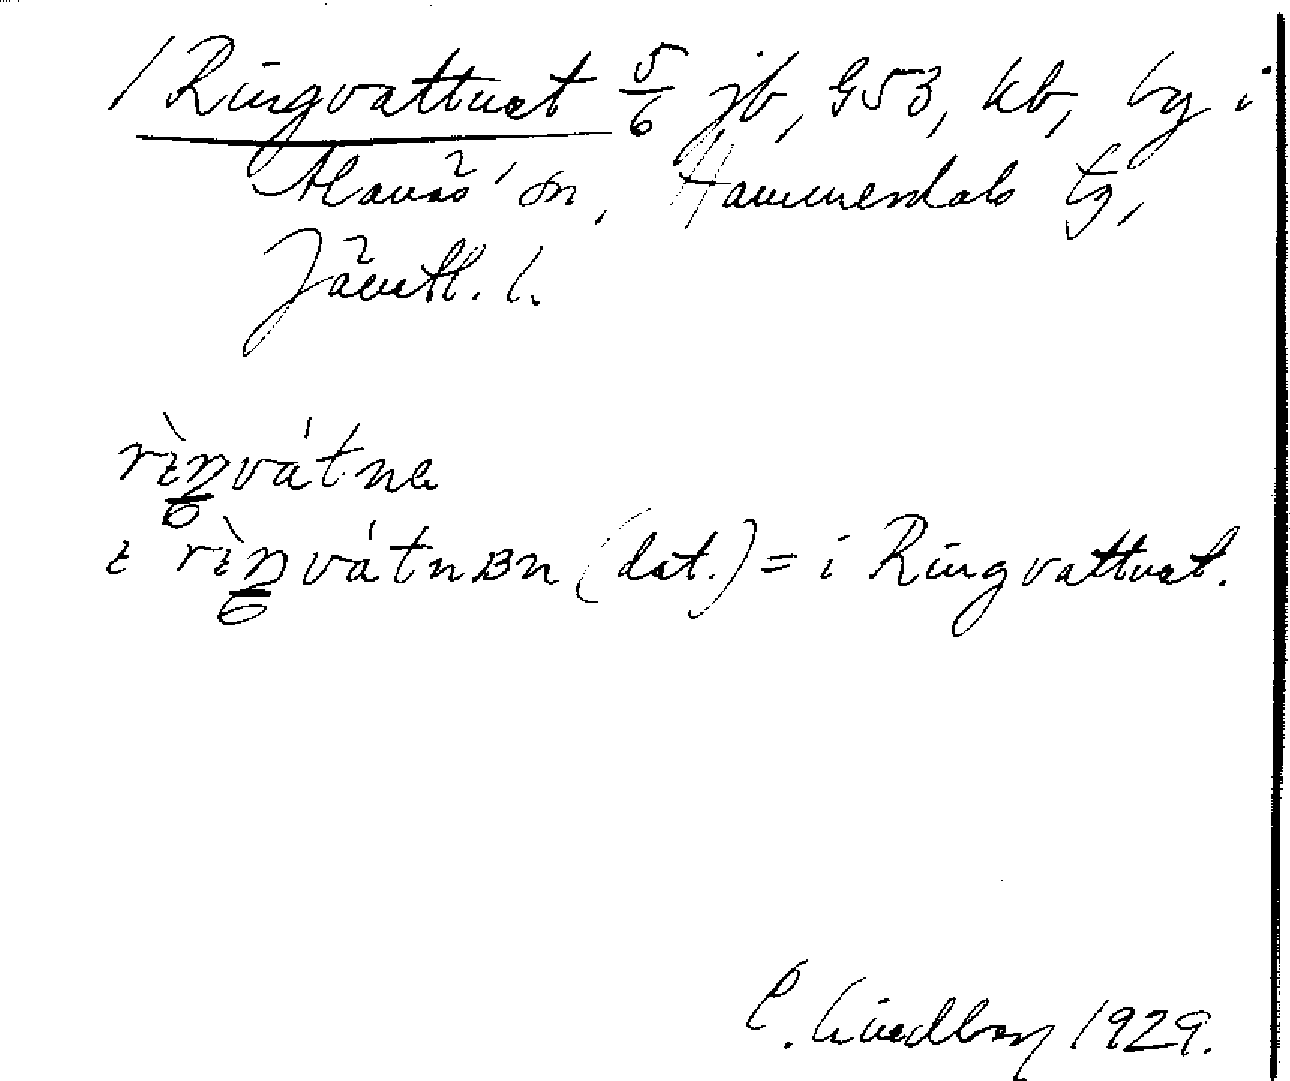 / Ringvattnet 5/6 jb, G53, kb, by i
Alanäs' sn, Hammerdals tg,
Jämtl. l.
rìŋvátna
ɩ rìŋvátnʙn (dat.) = i Ringvattnet.
C. Lindberg 1929.